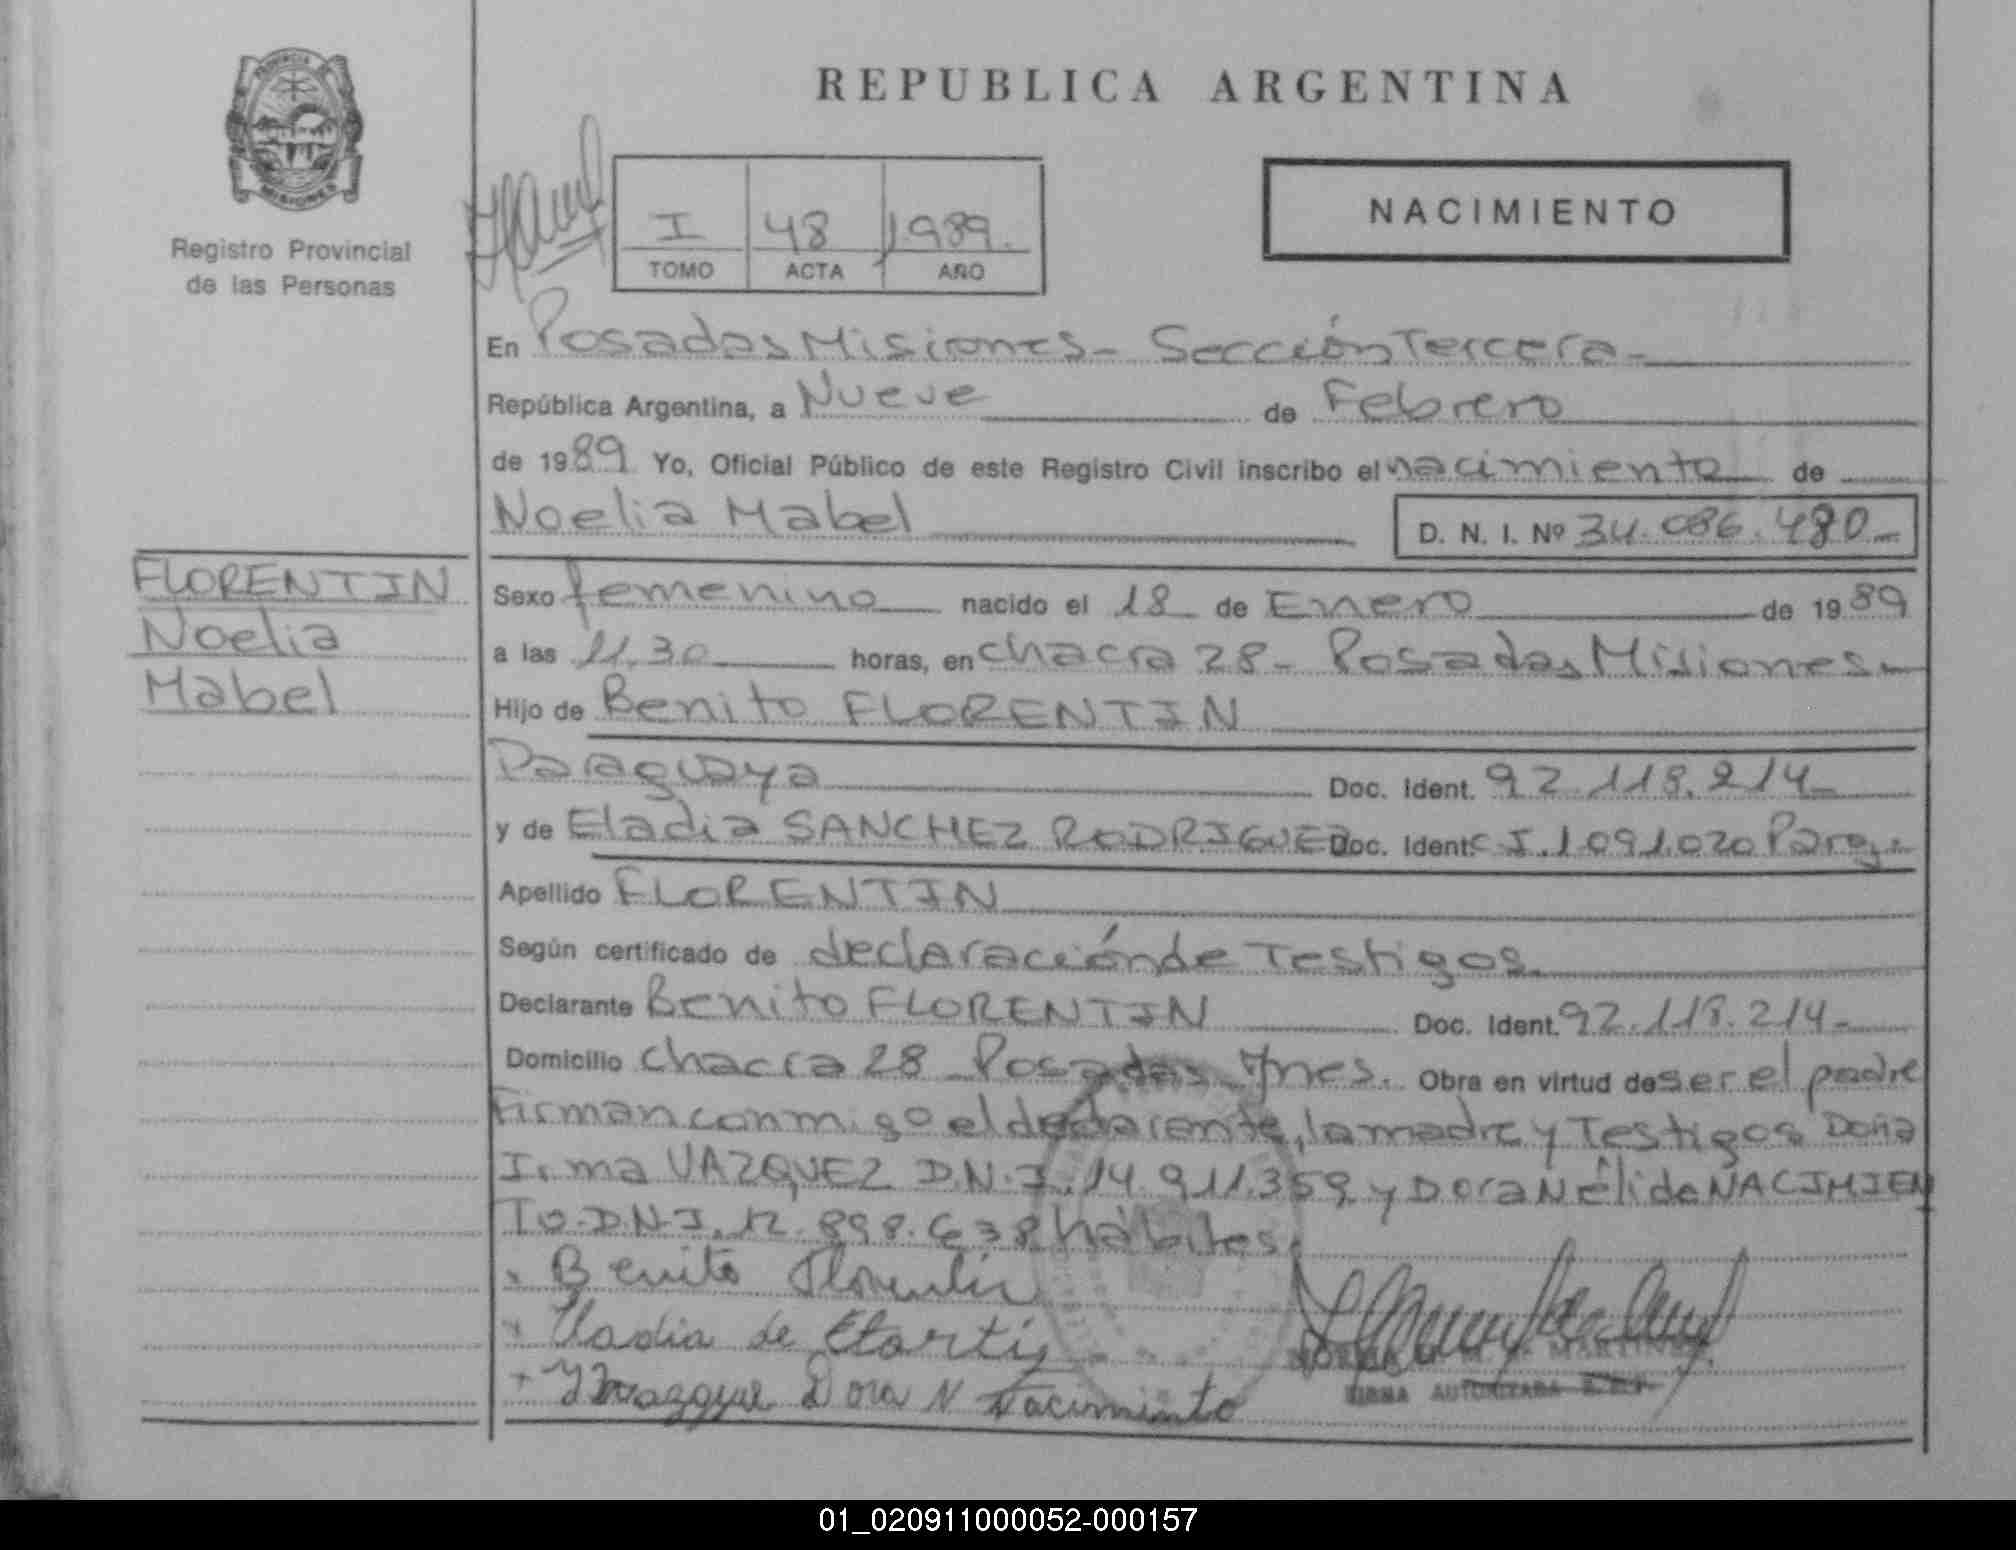 PROVINCIA
MISIONES
Registro Provincial
de las Personas
REPUBLICA ARGENTINA
I 48 1989.
TOMO ACTA AÑO
NACIMIENTO
En Posadas Misiones- Sección Tercera-
República Argentina, a Nueve de Febrero
de 1989 Yo, Oficial Público de este Registro Civil inscribo el nacimiento de
Noelia Mabel D. N. I. Nº 34.086.480-
FLORENTIN
Noelia
Mabel
Sexo femenino nacido el 18 de Enero de 1989
a las 11.30 horas, en chacra 28- Posadas Misiones-
Hijo de Benito FLORENTIN
Paraguaya Doc. Ident. 92.118.214-
y de Eladia SANCHEZ RODRIGUEZ Doc. Ident. C.I.1.091.020 Parag.-
Apellido FLORENTIN
Según certificado de declaración de Testigos.
Declarante Benito FLORENTIN Doc. Ident. 92.118.214-
Domicilio chacra 28 Posadas Mnes. Obra en virtud de ser el padre
Firman conmigo el declarante, la madre y Testigos Doña
Irma VAZQUEZ D.N.I. 14.911.359 y Dora Nélida NACIMIEN
TO.D.N.I. 12.898.638 hábiles.
Benito Florentin
Eladia de
Dora N Nacimiento
MARTINEZ
FIRMA AUTORIZADA
01_020911000052-000157